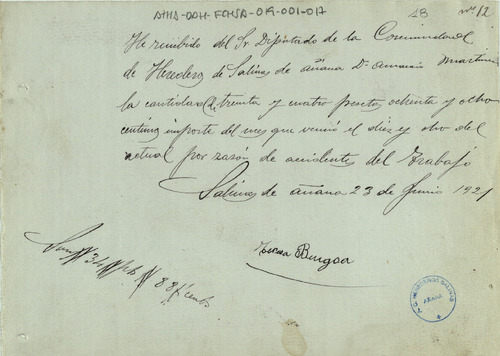 ATHA-DAH-FCHSA-019-001-017
18
nº 12
He recibido del Sr Diputado de la Comunidad
de Herederos de Salinas de añana Dn amancio Martinez
la cantidad de treinta y cuatro pesetas ochenta y ocho
centimos importe del mes que vencio el diez y ocho del
actual por razón de accidentes del Trabajo
Salinas de añana 23 de Junio 1921
Son 34 88 cents
Burgoa